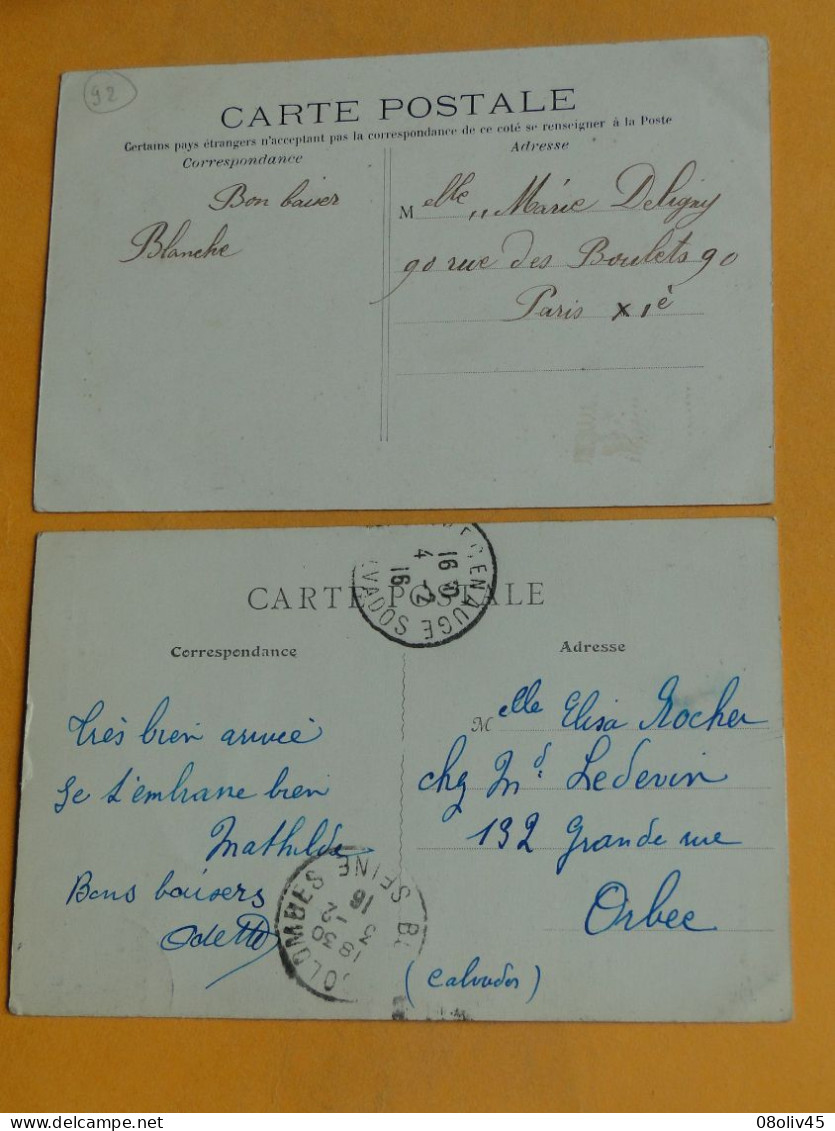 92
CARTE POSTALE
Certains pays étrangers n'acceptant pas la correspondance de ce coté se renseigner à la Poste
Correspondance
Adresse
Bon baiser
Blanche
Melle Marie Deligny
90 rue des Boulets 90
Paris XIè
CARTE POSTALE
Correspondance
Adresse
Très bien arrivée
Je t'embrasse bien
Mathilde
Bons baisers
Odette
Melle Elisa Rocher
chz Md Ledevin
192 Grande rue
Orbec
(Calvados)
16
4 -2
16
3 -2
16
OLOMBES
SEINE
18 30
08oliv45